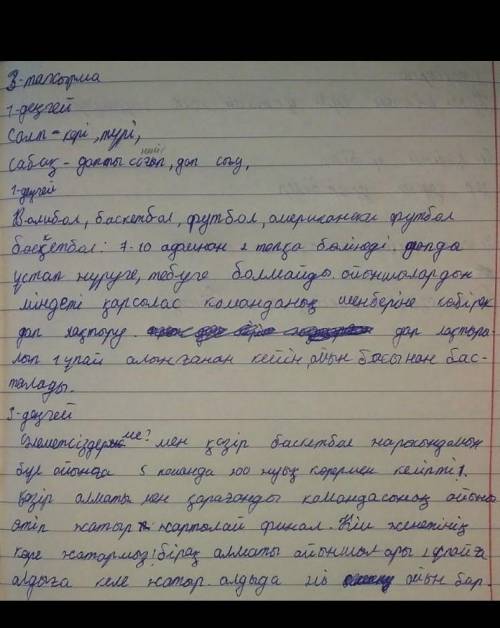 3-тапсырма
1-деңгей
Салт-көрі, түрі,
сабақ-допты соғып, доп соғу,
1-деңгей
Волибол, баскетбол, футбол, американски футбол
басқетбол: 7-10 адамнан 2 топқа бөлінеді. допда
ұстап жүруге, тебуге болмайды. ойыншлардың
міндеті қарсылас команданың шеңберіне көбірек
доп лақтыру. доп лақтыра-
лып 1 ұпай алынғанан кейін, ойын басынан бас-
талады.
3-деңгей
ме? мен қәзір баскетбол жарысындамын
бұл ойында 5 команда 100 мың көрермен
қәзір алматы мен қарағанды командасының ойыны
өтіп жатыр жартылай финал. Кім жеңетініің
көре жатармыз! бірақ алматы ойыншылары 2 ұпайға
алдыға келе жатыр. алдыда әлі ойын бар.